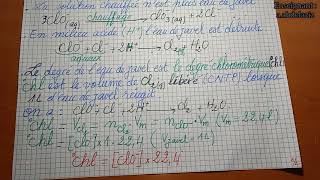 Enseignant :
a. abdelaziz
La solution chauffée n'est plus eau de javel
3ClO⁻(aq) chauffage → ClO₃⁻(aq) + 2Cl⁻
En milieu acide (H⁺) l'eau de javel est détruite
ClO⁻ + Cl⁻ + 2H⁺ → Cl₂ + H₂O
Le degré de l'eau de javel est le degré chlorométrique (°Chl)
°Chl est le volume de Cl₂(g) libéré (CNTP) lorsque
1L d'eau de javel réagit
on a : ClO⁻ + Cl⁻ + 2H⁺ → Cl₂ + H₂O
°Chl = V Cl₂ = n Cl₂ · Vm = n ClO⁻ · Vm (Vm = 22,4 L)
°Chl = [ClO⁻] × 1 × 22,4 (V javel = 1L)
°Chl = [ClO⁻] × 22,4